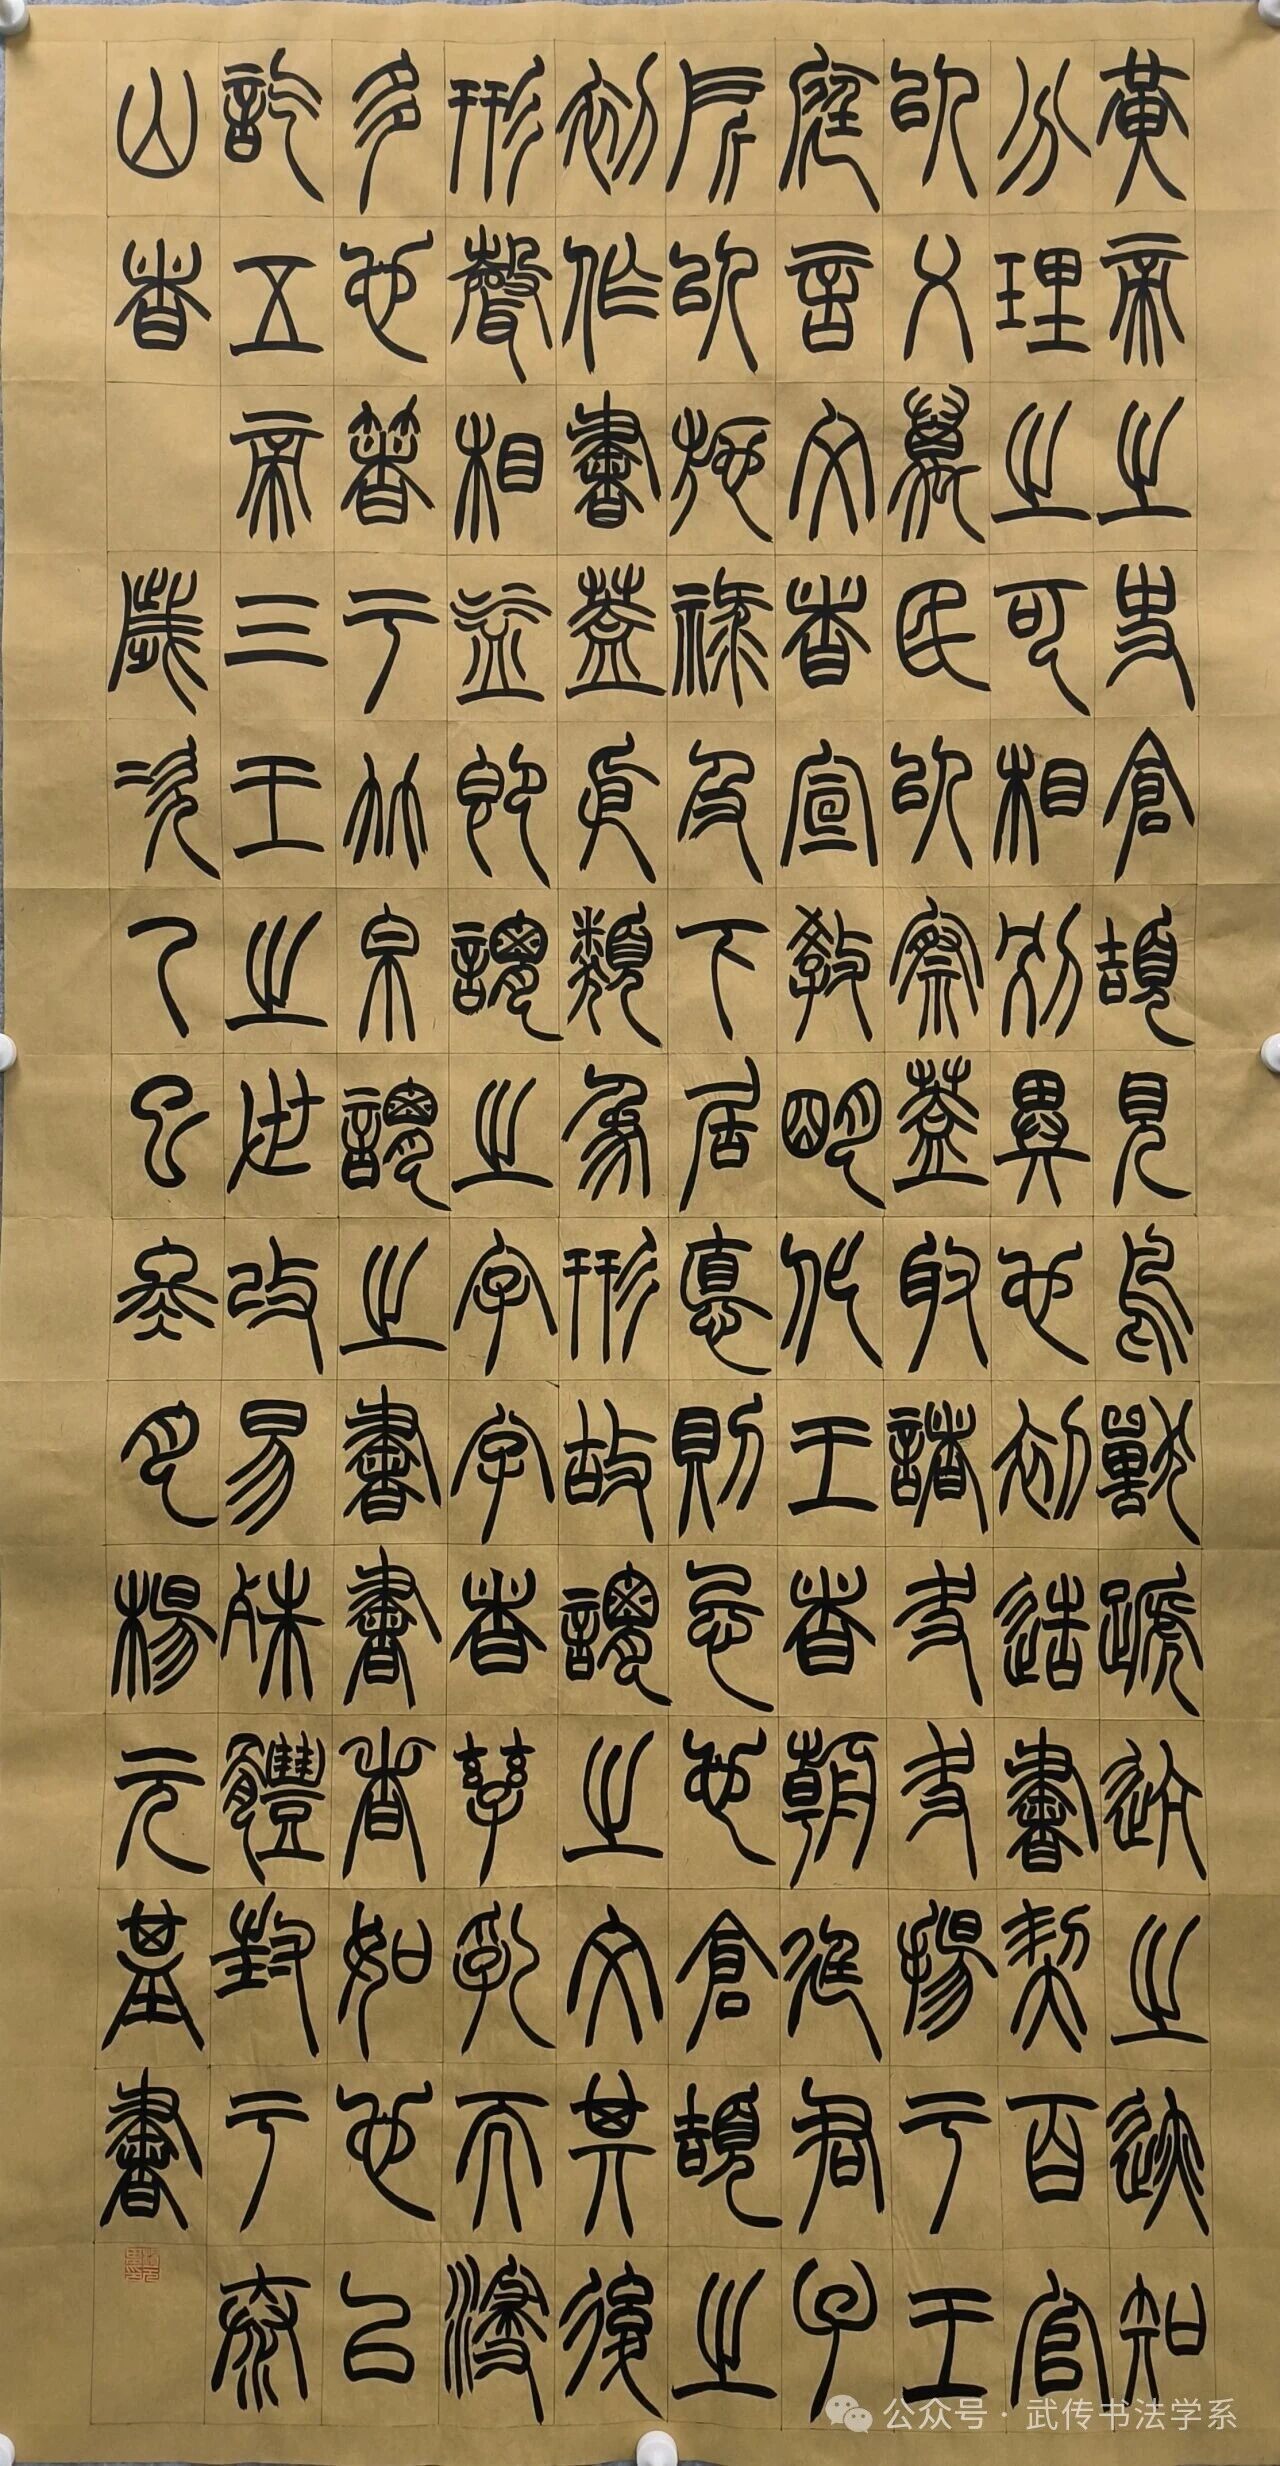 黄帝之史倉頡見鳥獸蹏迒之迹知
分理之可相别異也初造書契百官
以乂萬民以察蓋取諸夬夬揚于王
庭言文者宣教明化王者朝廷君子
所以施禄及下居德則忌也倉頡之
初作書蓋依類象形故謂之文其後
形聲相益即謂之字字者孳乳而浸
多也箸于竹帛謂之書書者如也以
訖五帝三王之世改易殊體封于泰
山者 歲次乙巳冬月楊元基書
公众号·武传书法学系